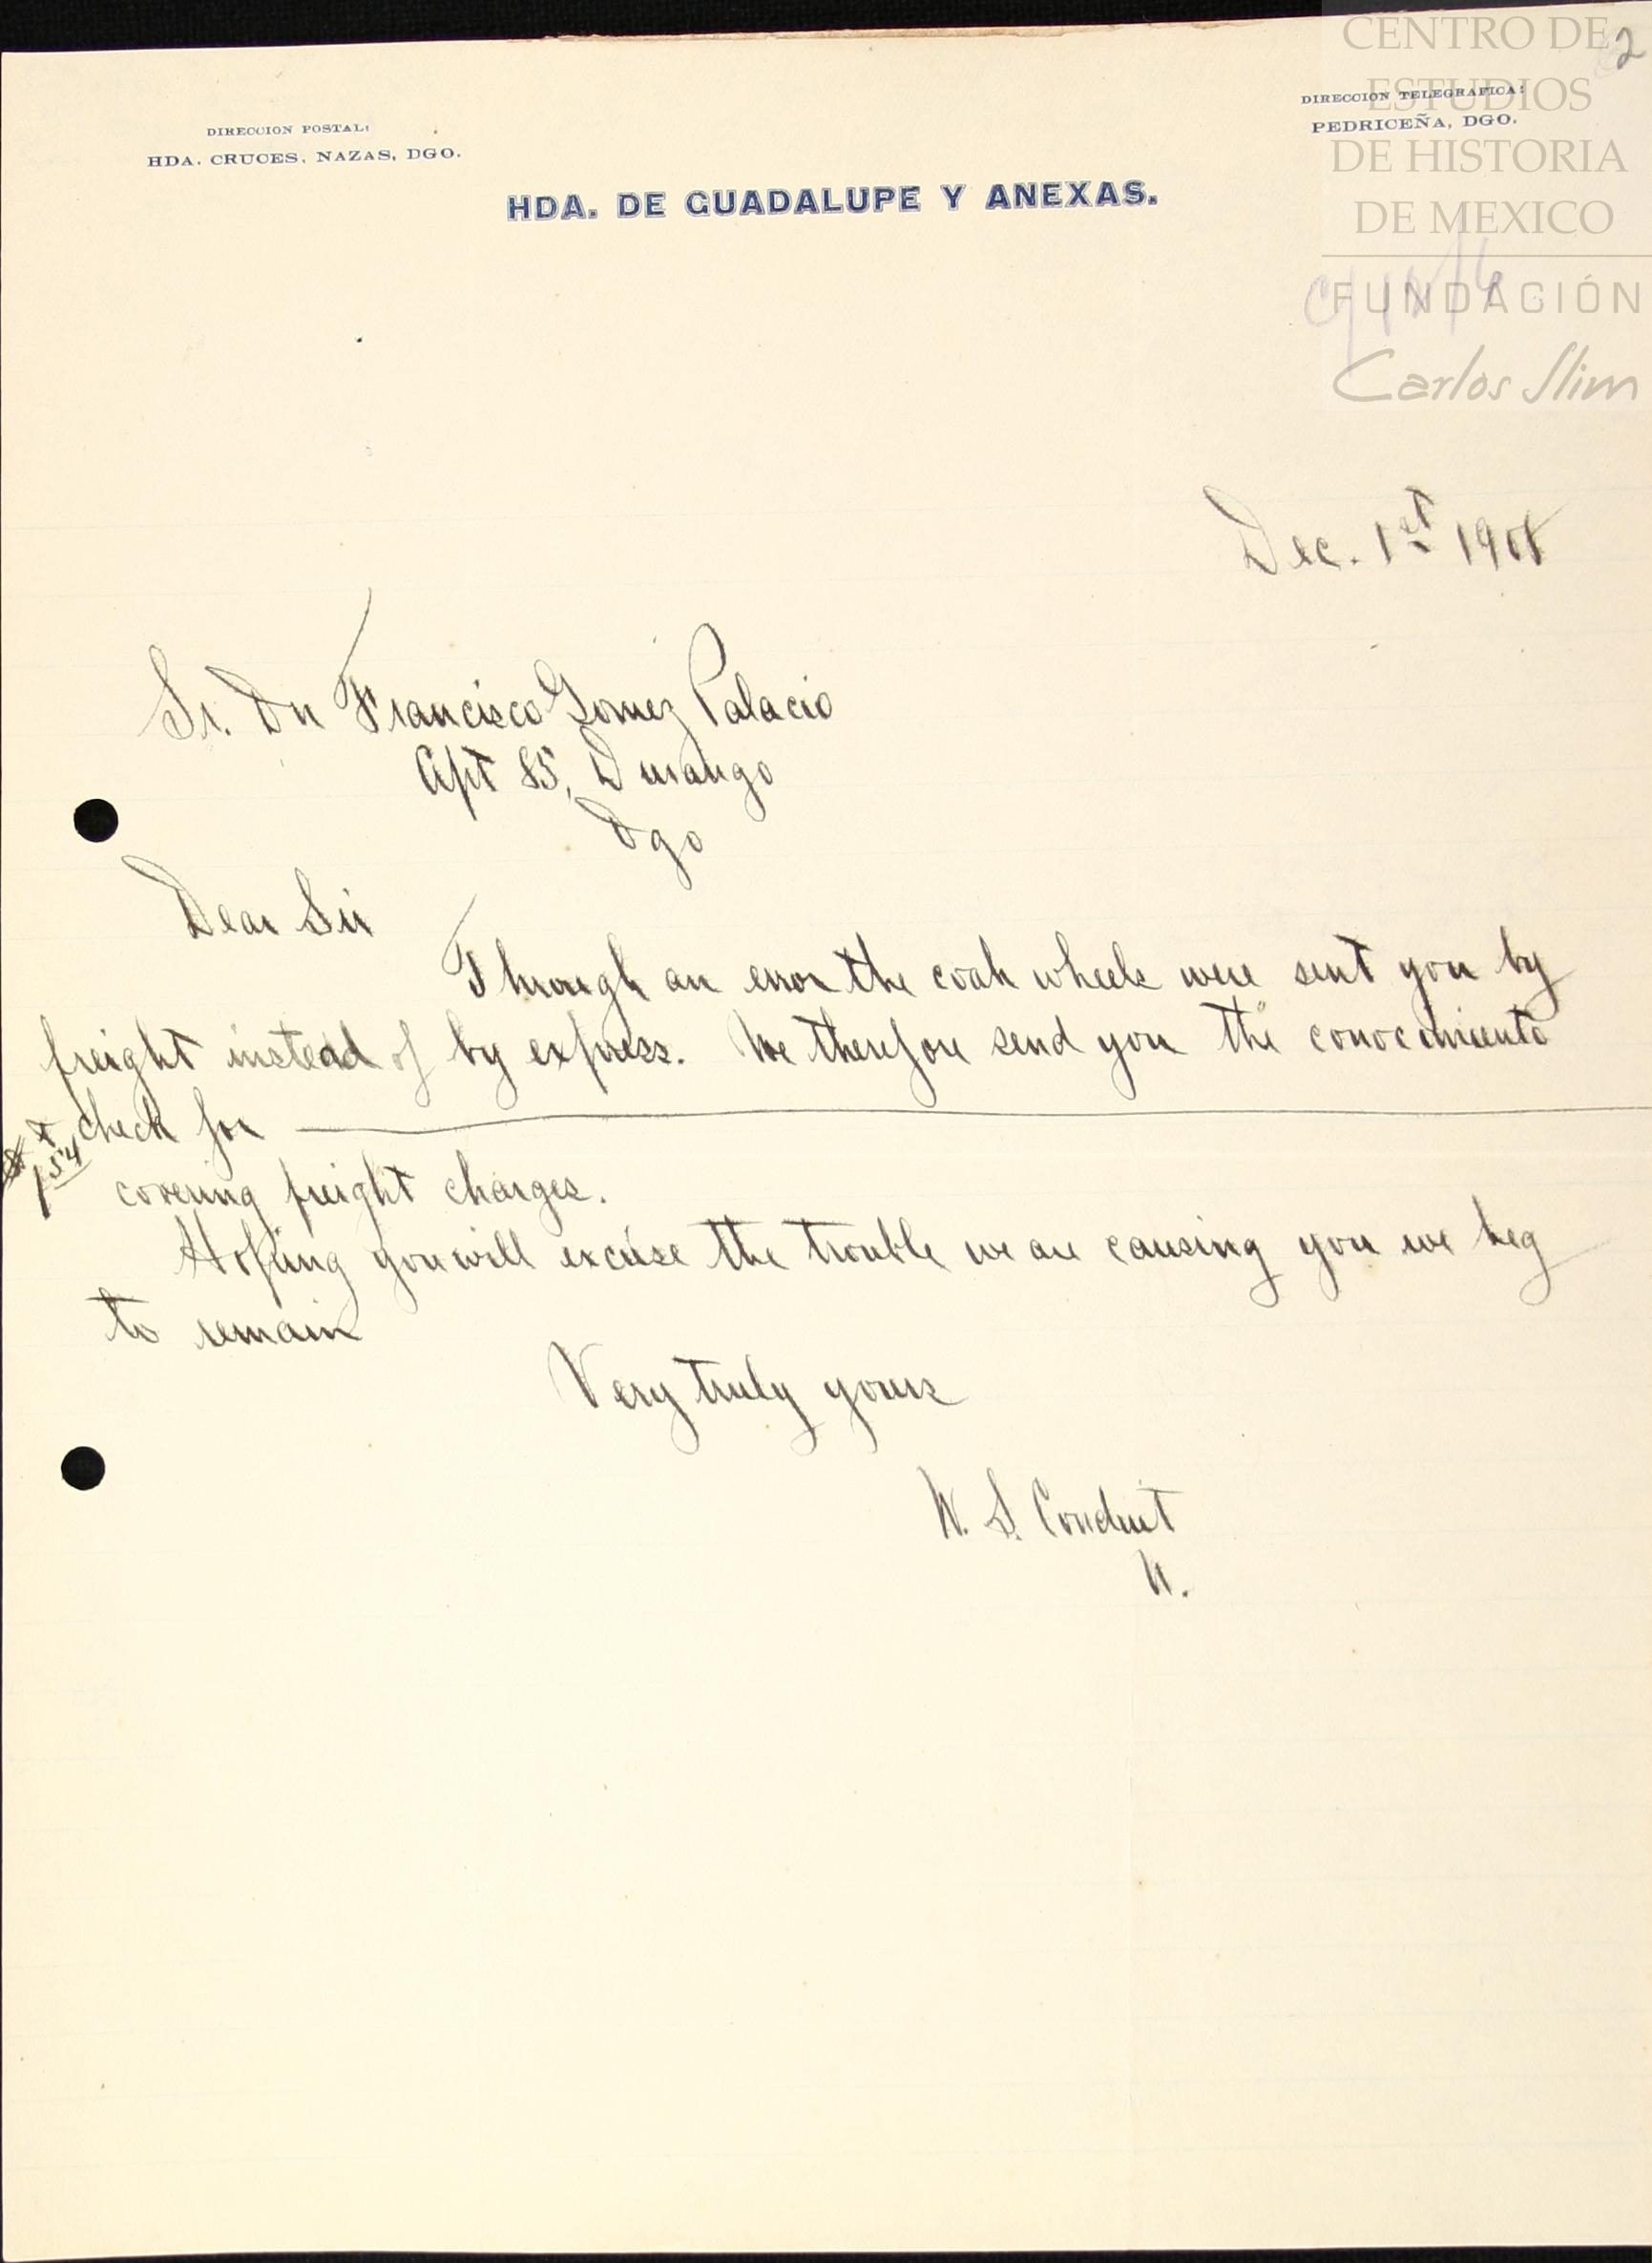 CENTRO DE
ESTUDIOS
DE HISTORIA
DE MEXICO
FUNDACIÓN
Carlos Slim
2
DIRECCION POSTAL:
HDA. CRUCES, NAZAS, DGO.
DIRECCION TELEGRAFICA:
PEDRICEÑA, DGO.
HDA. DE GUADALUPE Y ANEXAS.
Dec. 1st 1908
Sr. Dn Francisco Gomez Palacio
Apt 85, Durango
Dgo
Dear Sir
Through an error the coah wheels were sent you by
freight instead of by express. We therefore send you the conocimiento
+ check for
1 54
covering freight charges.
Hoping you will excuse the trouble we are causing you we beg
to remain
Very truly yours
W. S. Conduit
N.